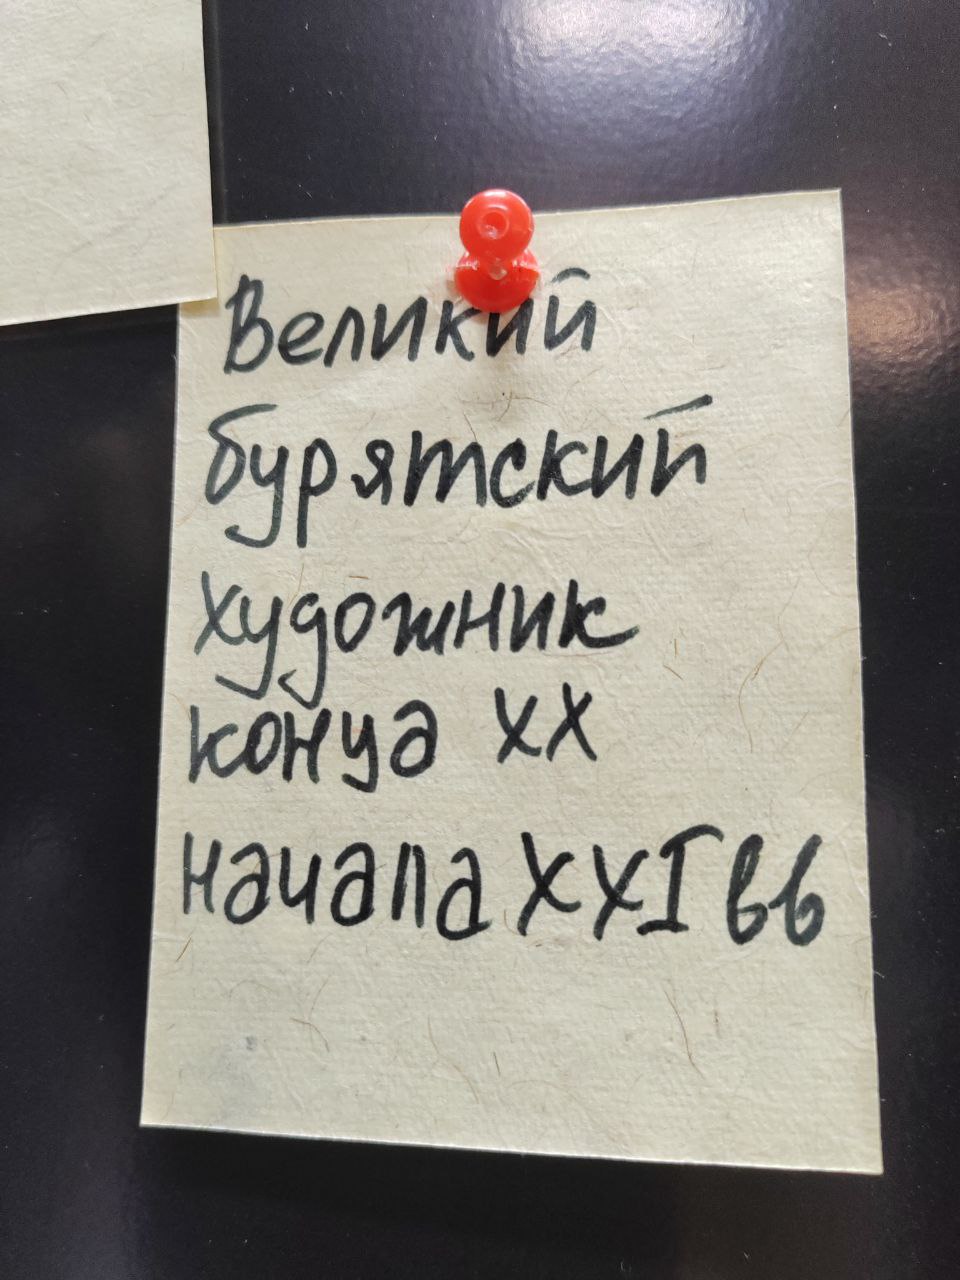 Великий
бурятский
художник
конца XX
начала XXI вв